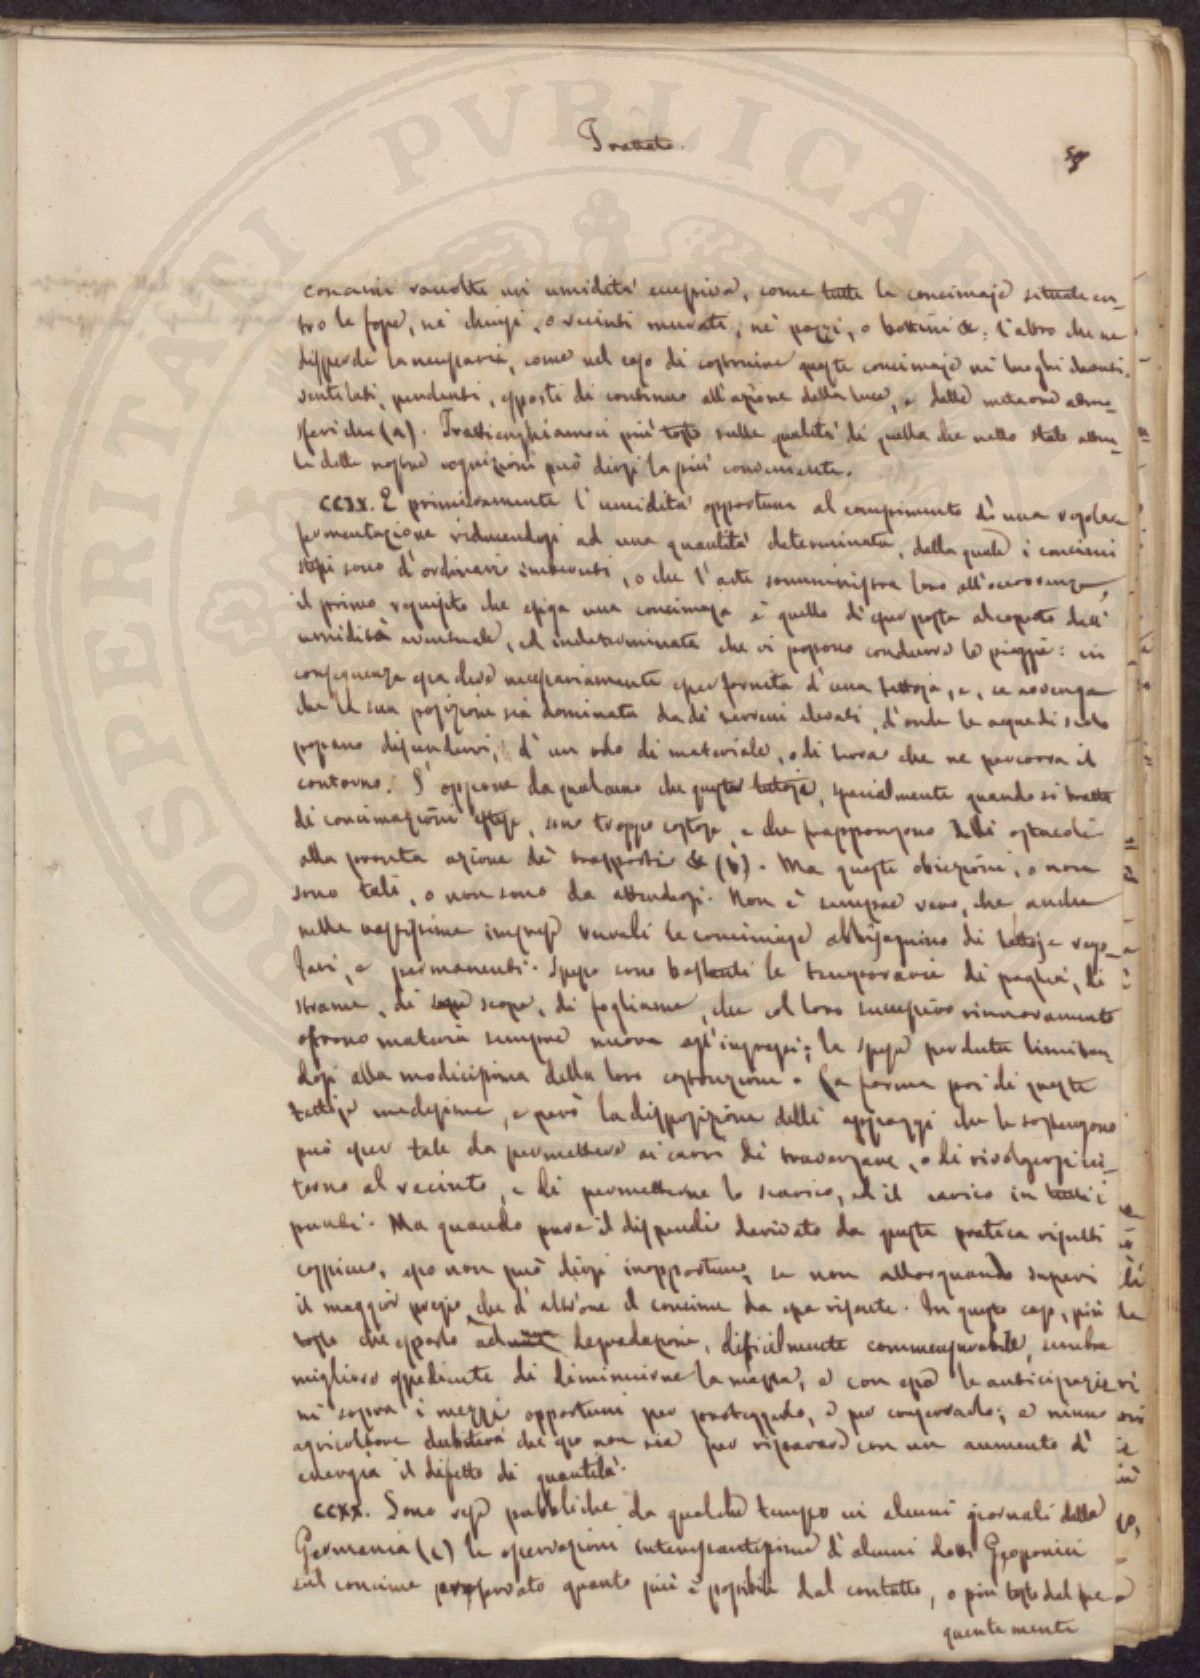 Trattato.
concimi raccolti un' umidità eccessiva, come tutte le concimaje situate en-
tro le fosse, ne' chiusi, o recinti murati, ne' pozzi, o bottini &c: l'altro che ne
disperde la necessaria, come nel caso di costruire queste concimaje ne' luoghi
ventilati, pendenti, esposti di continuo all'azione della luce, e delle meteore atmo-
sferiche (a). Tratteniamoci più tosto sulle qualità di quella che nello stato attua-
le delle nostre cognizioni può dirsi la più conveniente.
CCIX. E primieramente l'umidità opportuna al compimento d'una regolare
fermentazione riducendosi ad una quantità determinata, della quale i concimi
stessi sono d'ordinario imbevuti, o che l'arte somministra loro all'occorrenza,
il primo requisito che esiga una concimaja è quello d'esser posta al coperto dell'
umidità eventuale, ed indeterminata che vi possono condurre le pioggie: in
conseguenza essa deve necessariamente esser fornita d'una tettoja, e, se avvenga
che la sua posizione sia dominata da de' terreni elevati, d'onde le acque di scolo
possano difondervi, d'un orlo di materiale, o di terra che ne percorra il
contorno. S'oppone da qualcuno che queste tettoje, specialmente quando si tratta
di concimazioni estese, sono troppo costose, e che frappongono delli ostacoli
alla pronta azione de' trasporti &c (b). Ma queste obiezioni, o non
sono tali, o non sono da attendersi. Non è sempre vero, che anche
nelle vastissime imprese rurali le concimaje abbisognino di tettoje rego-
lari, e permanenti. Spesso sono bastanti le temporarie di paglia, di
strame, di scope, di fogliame, che col loro successivo rinnovamento
offrono materia sempre nuova agl'ingrassi; la spesa perduta limitan-
dosi alla modicissima della loro costruzione. La forma poi di queste
tettoje medesime, e però la disposizione delli appoggi che le sostengono
può esser tale da permettere ai carri di traversare, o di rivolgersi in-
torno al recinto, e di permetterne lo scarico, ed il carico in tutti i
punti. Ma quando pure il dispendio derivato da questa pratica risulti
cospicuo, esso non può dirsi inopportuno, se non allorquando superi
il maggior pregio che d'altronde il concime da essa risente. In questo caso, più
tosto che esporlo ad una degradazione, dificilmente commensurabile, sembra
migliore espediente di diminuirne la massa, e con essa le anticipazio-
ni sopra i mezzi opportuni per proteggerlo, e per conservarlo; e niun
agricoltore dubiterà che esso non sia per riparare con un aumento d'
energia il difetto di quantità.
CCXX. Sono rese pubbliche da qualche tempo in alcuni giornali della
Germania (c) le operazioni interessantissime d'alcuni dotti Geoponici
sul concime preservato quanto più è possibile dal contatto, o più tosto dal fre-
quentemente